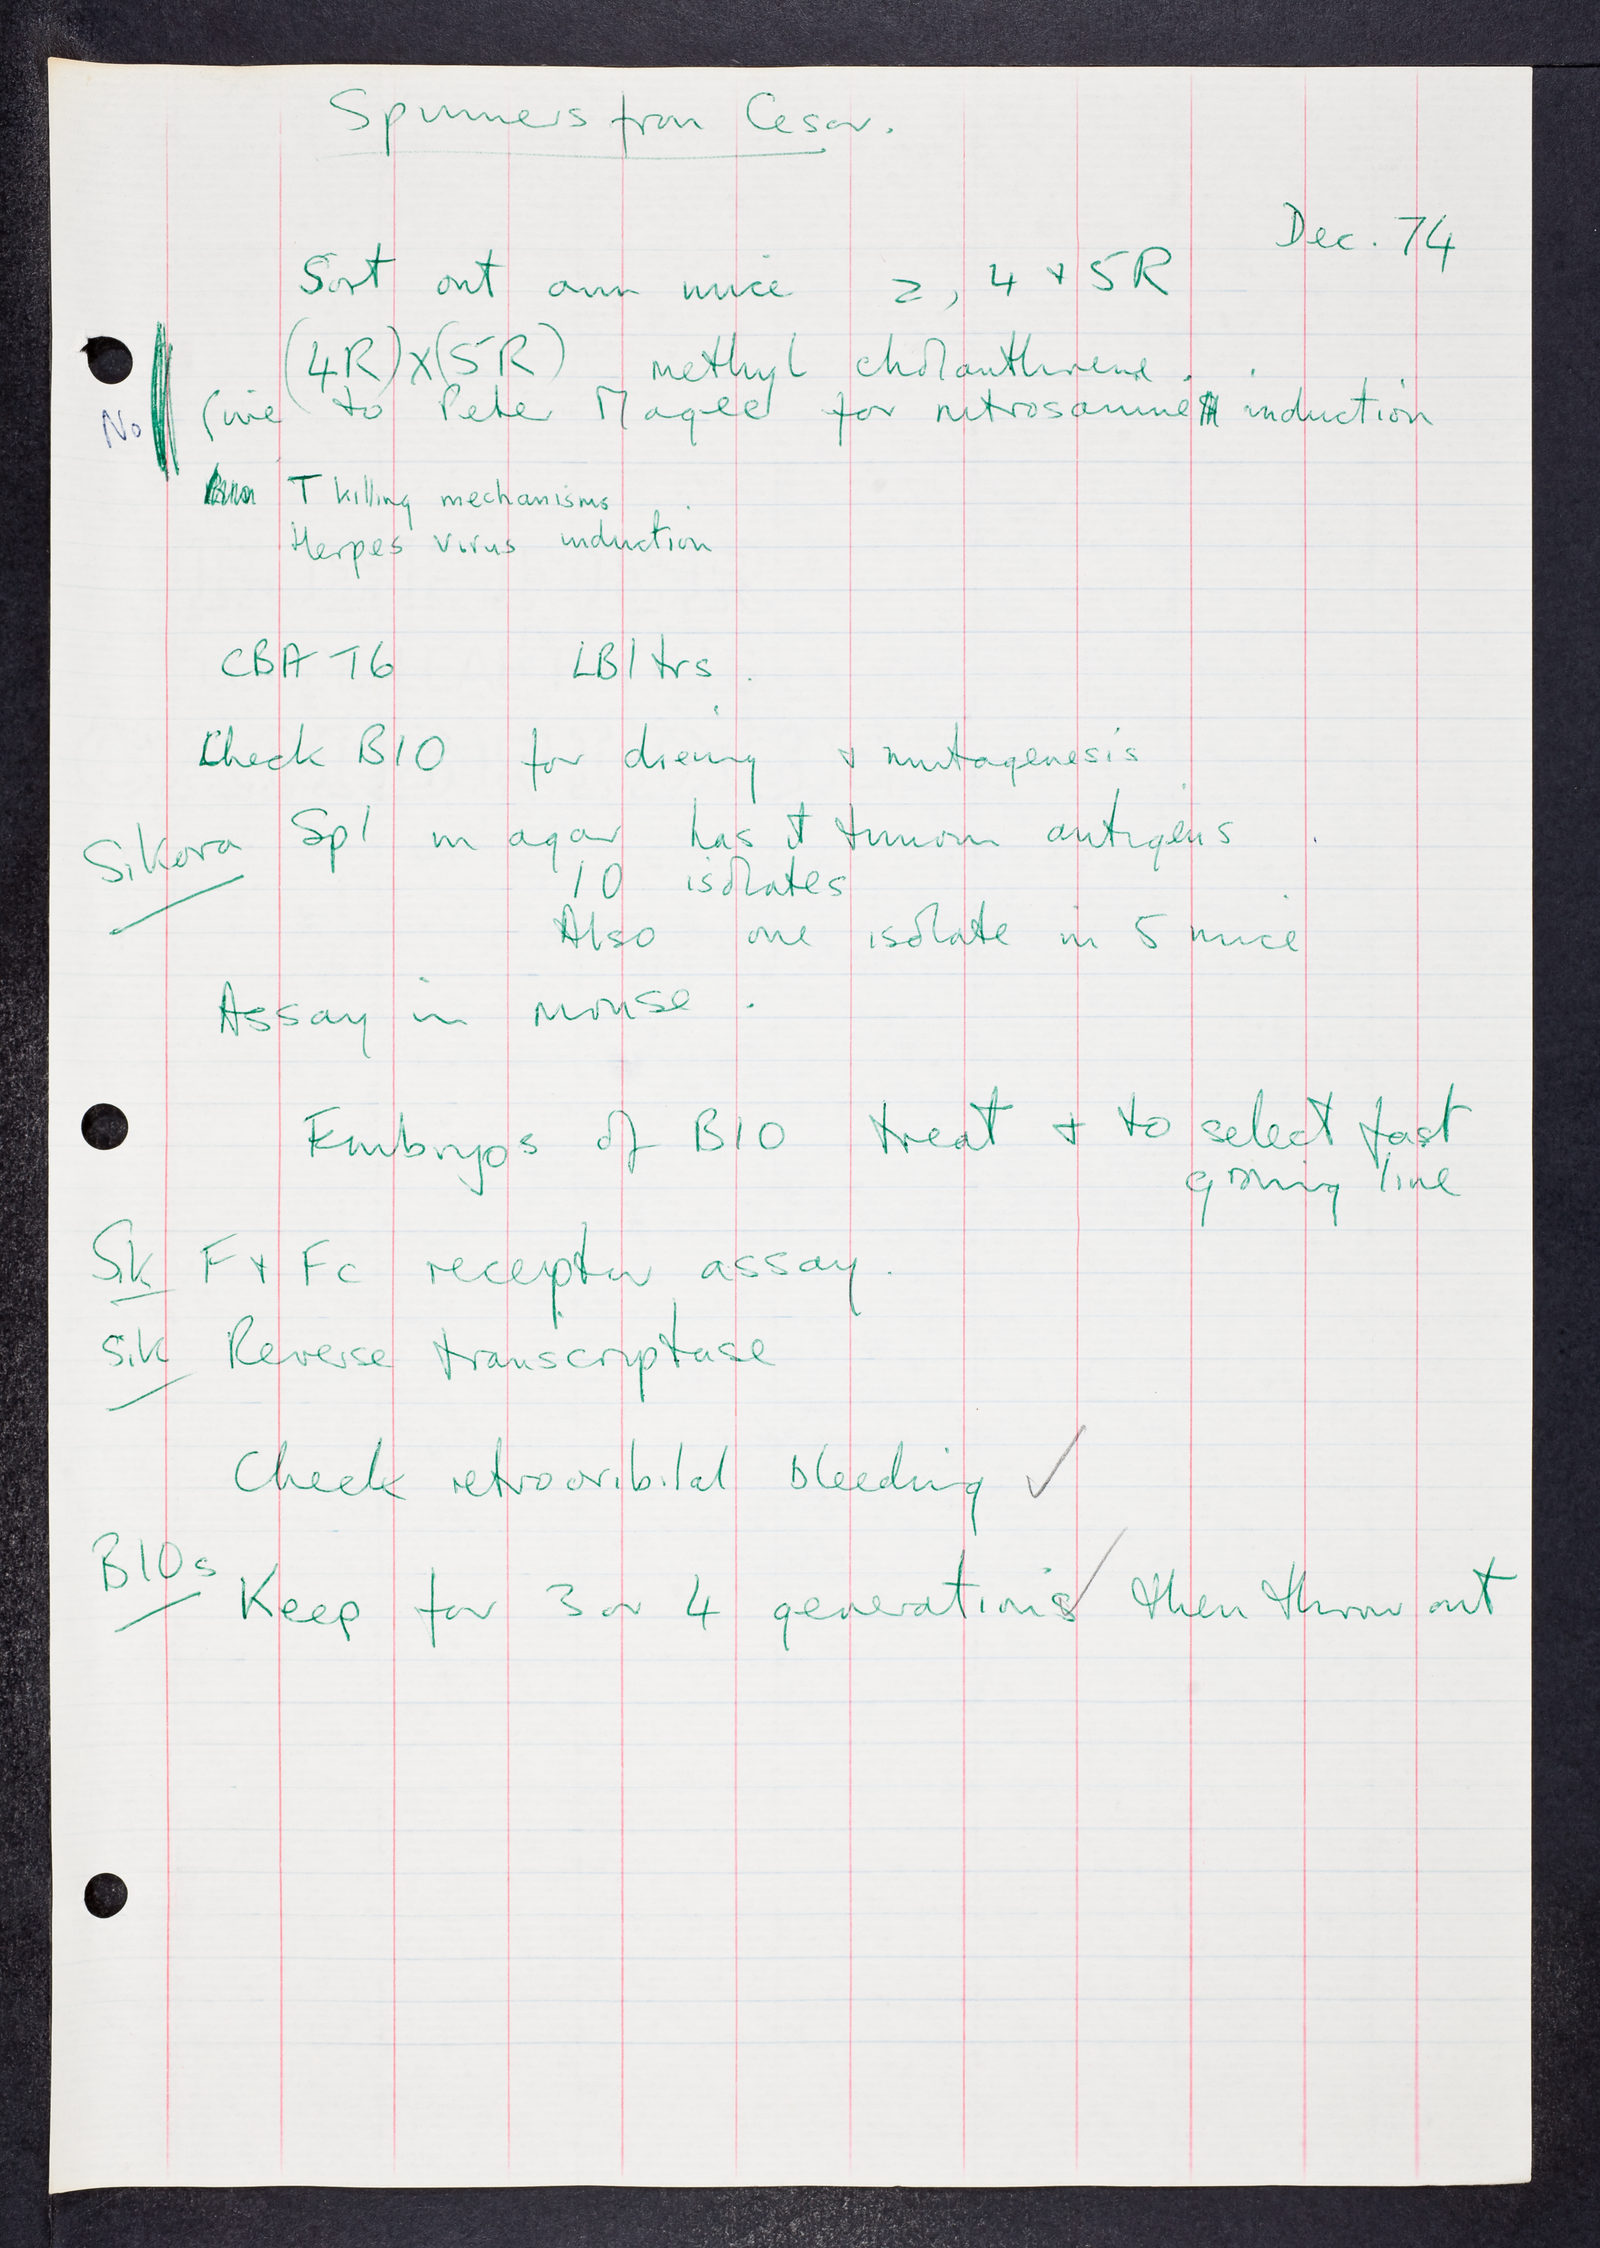 Spinners from Cesar.
Dec. 74
Sort out own mice 2, 4 + 5R
(4R)x(5R) methyl cholanthrene.
No Give to Peter Magee for nitrosamine induction
T killing mechanisms
Herpes virus induction
CBA T6 LB1 trs.
Check B10 for dieing + mutagenesis
Sikora Sp1 in agar has it tumour antigens.
10 isolates
Also one isolate in 5 mice
Assay in mouse.
Embryos of B10 treat + to select fast
growing line
Sik F + Fc receptor assay.
Sik Reverse transcriptase
Check retrooribital bleeding ✓
B10s
Keep for 3 or 4 generations ✓ then throw out